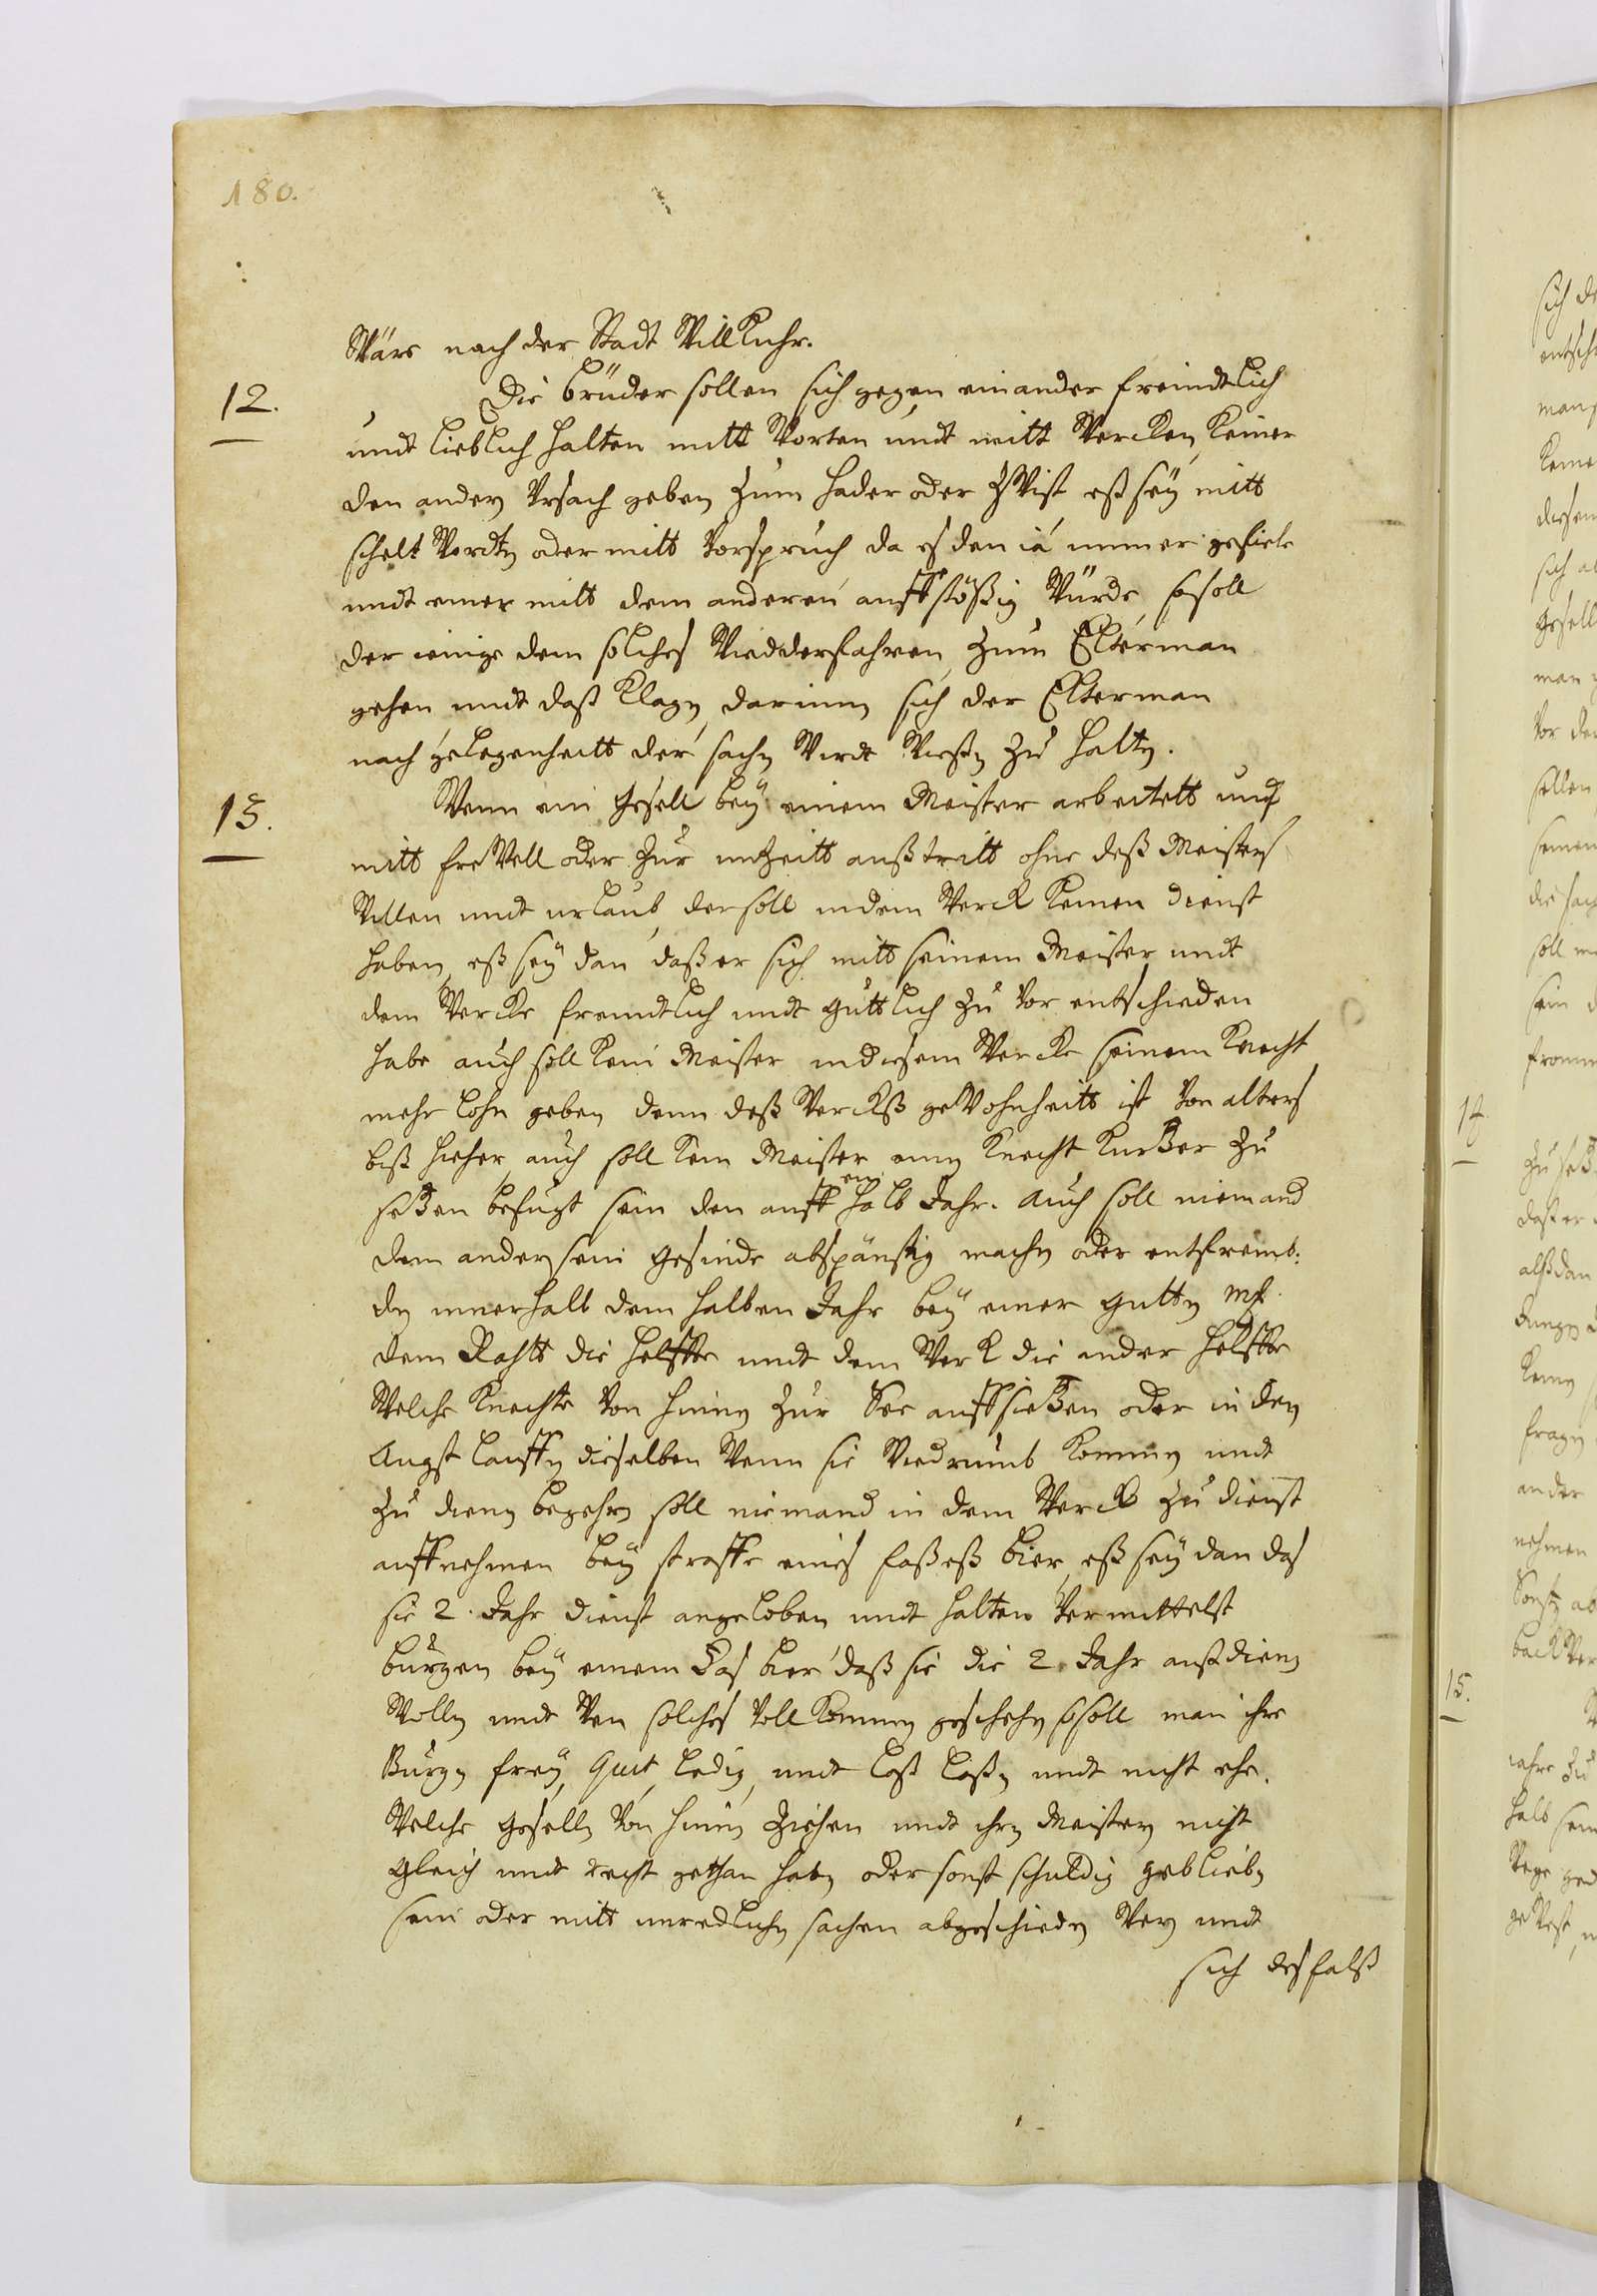 180.
Wäre nach der Stadt Willkuhr.
12. Die brüder sollen sich gegen einander freindtlich
undt lieblich halten mitt Worten undt mitt Wercken, Keiner
den andern Vrsach geben zum hader oder ZWist eß seÿ mitt
schelt Wordtn oder mitt Vorspruch da es den ia immer gefiele
undt einer mitt dem anderen auffstößig Würde so soll
der ienige dem solches Wiedderfahren, zum Elterman
gehen undt daß Klagn, darinn sich der Elterman
nach gelegenheitt der sachn Wirdt Wißn zu haltn.
13. Wenn ein Gesell beÿ einem Meister arbeitett und
mitt freWell oder zur unzeitt außtritt ohne deß Meisters
Willen undt urlaub, der soll in dem Werck Keinen dienst
haben, eß seÿ dan daß er sich mitt seinem Meister undt
dem Wercke freundtlich undt guttlich zu vor entschieden
habe auch soll Kein Meister in diesem Wercke seinem Knecht
mehr lohn geben denn deß Wercks geWohnheitt ist von alters
biß hieher, auch soll Kein Meister einn Knecht Kurtzer zu
setzen befugt sein den auff ein halb Jahr. Auch soll niemand
dem andern sein Gesinde abspänstig machn oder entfremb:
dn innerhalb dem halben Jahr beÿ einer guttn Mk.
dem Rahtt die helffte undt dem Werck die ander helffte
Welche Knechte von hinnn zur See auffsietzen oder in den
Augst lauffn dieselben Wenn sie Wiedrumb Kommn undt
zu dienn begehrn soll niemand in dem Werck zu dienst
auffnehmen beÿ straffe eines faßeß bier, eß seÿ dan das
sie 2. Jahr dienst angeloben undt halten vermittelst
burgen beÿ einem Fas bier daß sie die 2. Jahr außdienn
Wolln undt Wen solches vollKommn geschehn so soll man ihre
Burgn freÿ, Quit, ledig, undt loß laßn undt nicht ehe.
Welche Geselln von hinnn ziehen undt ihrn Meistern nicht
gleich undt recht gethan habn oder sonst schuldig gebliebn
sein oder mitt unredlichn sachen abgeschiedn Wern undt
sich desfalß
14.
15.